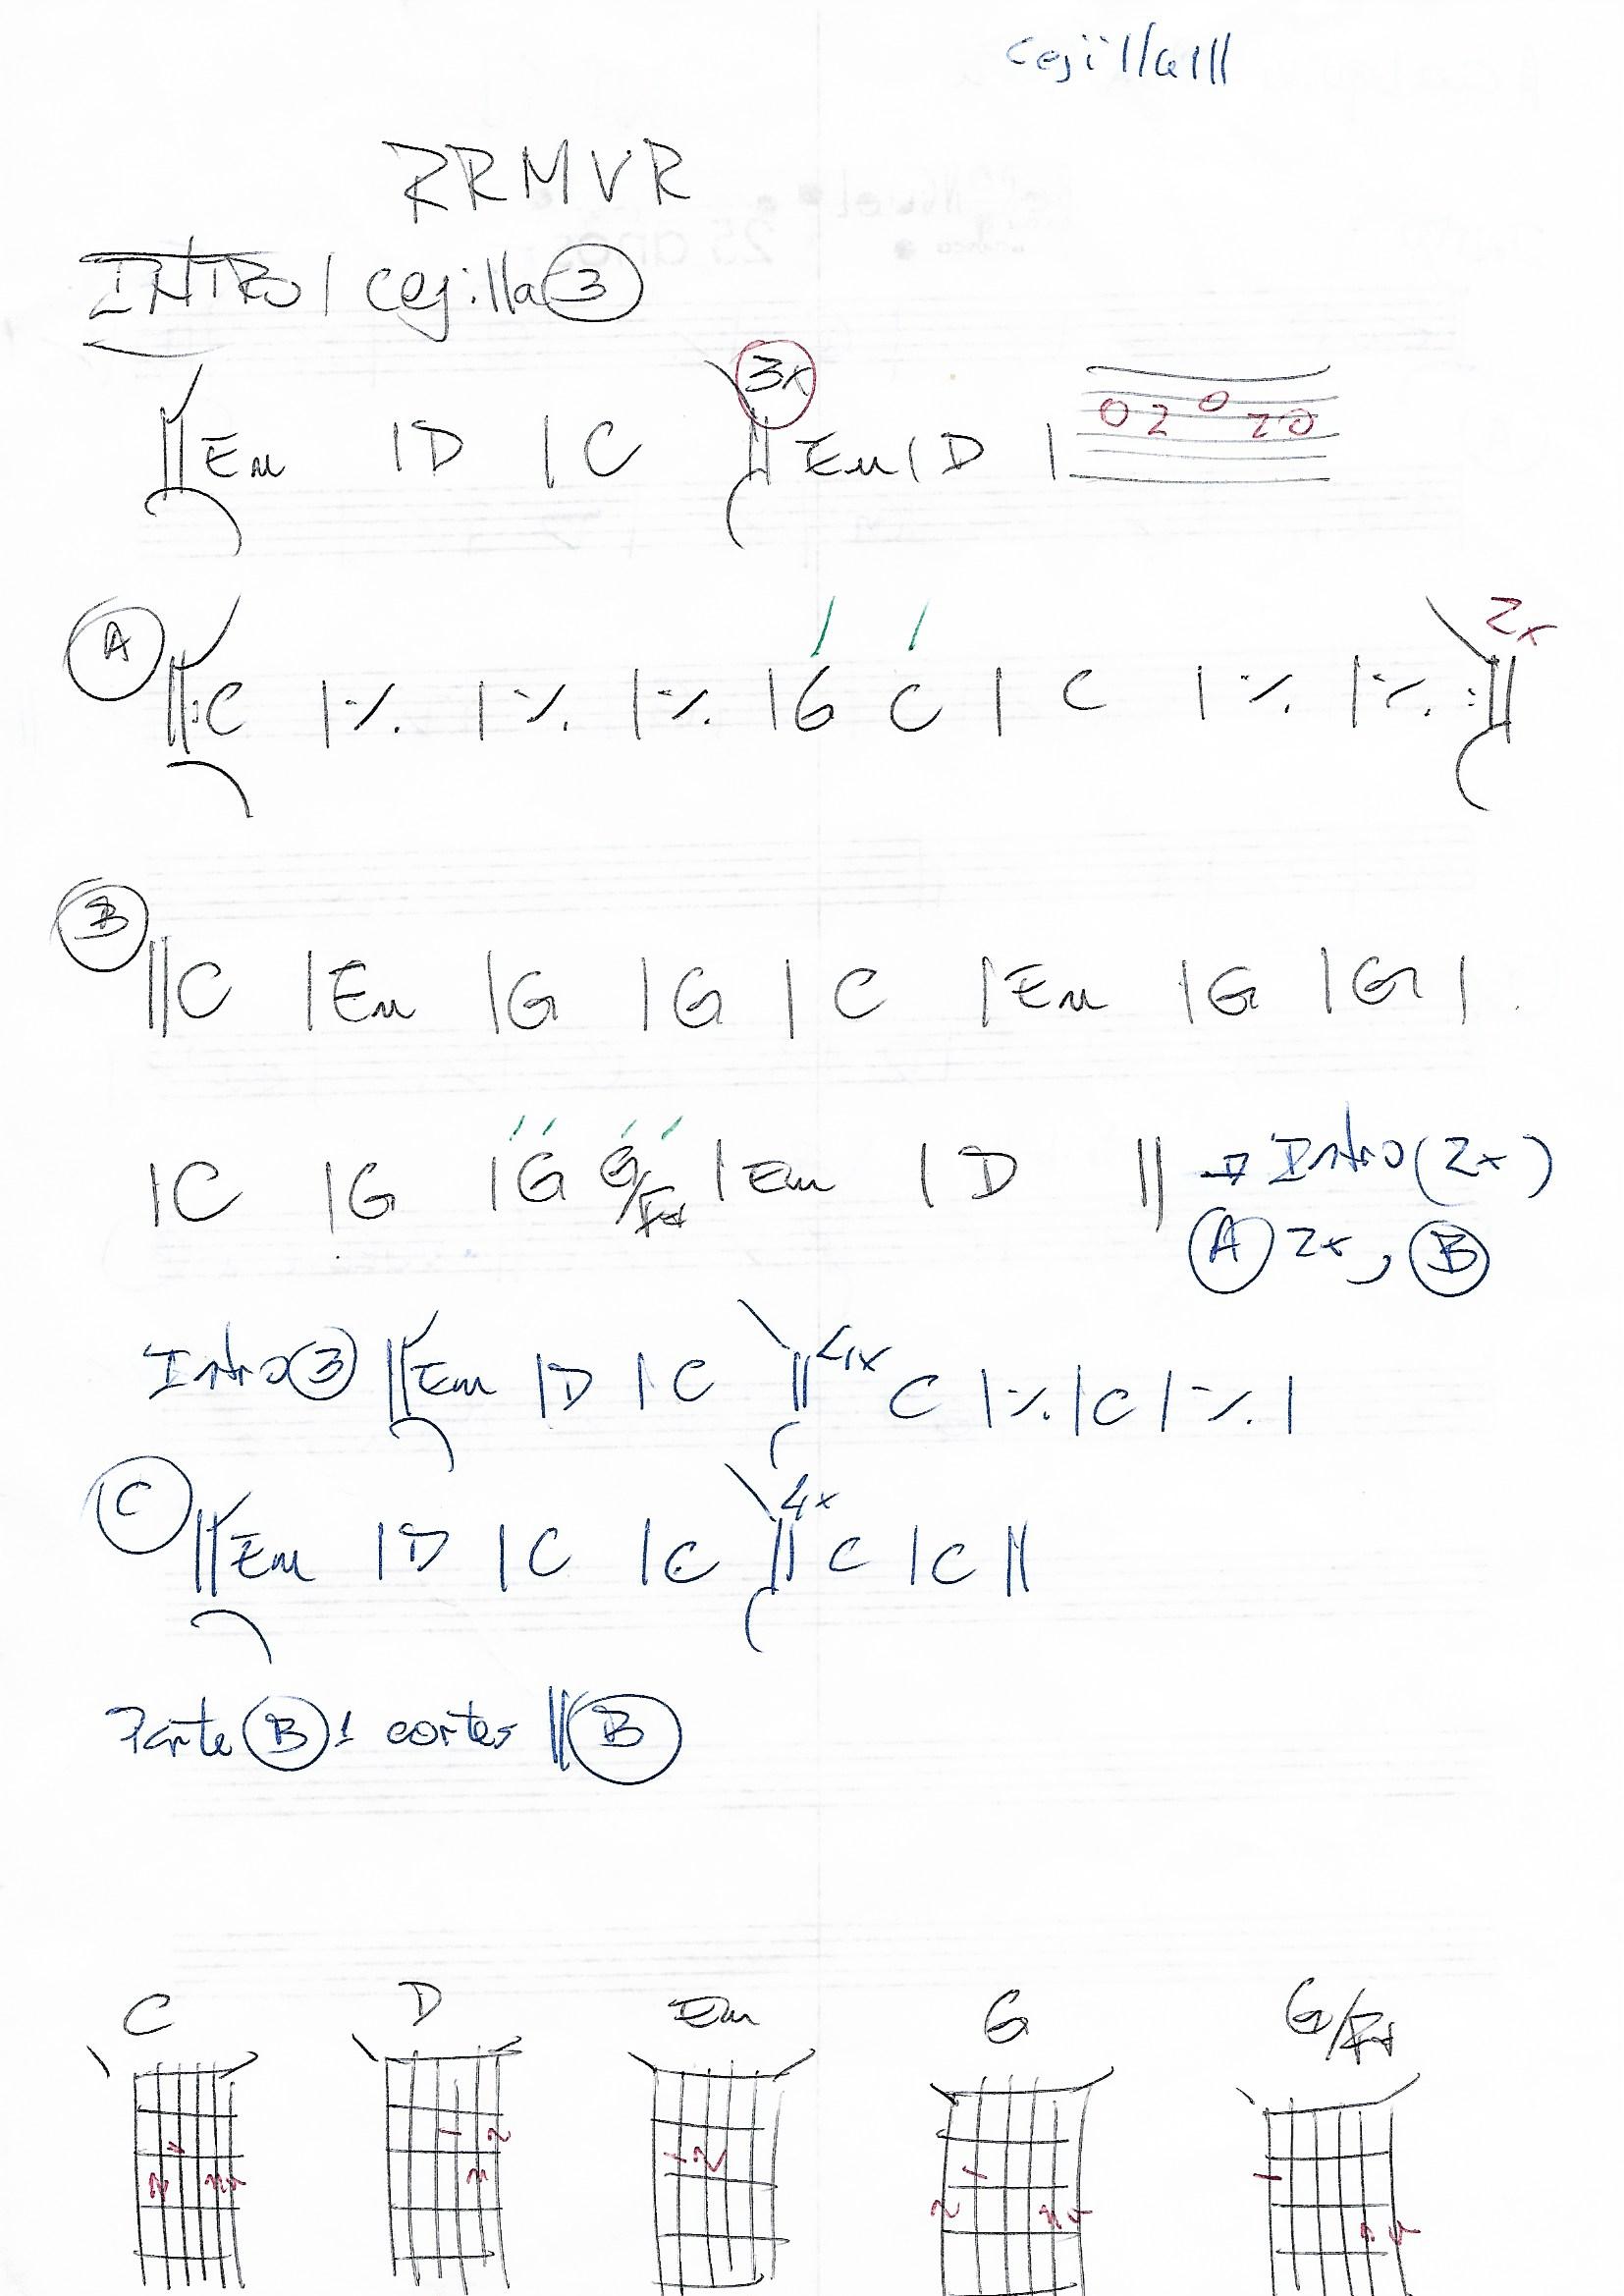 cejilla III
RRMVR
INTRO | cejilla 3
|| Em | D | C || 3x Em | D | 0 2 0 2 0
A ||: C | ٪ | ٪ | ٪ | G C | C | ٪ | ٪ :|| 2x
B || C | Em | G | G | C | Em | G | G |
| C | G | G G/F# | Em | D || → Intro (2x)
A 2x, B
Intro 3 || Em | D | C || 4x C | ٪ | C | ٪ |
C || Em | D | C | C || 4x C | C ||
Parte B 1 cortes || B
C D Em G G/F#
1 1 2 1 2 1 1
2 3 4 3 2 3 4 3 4